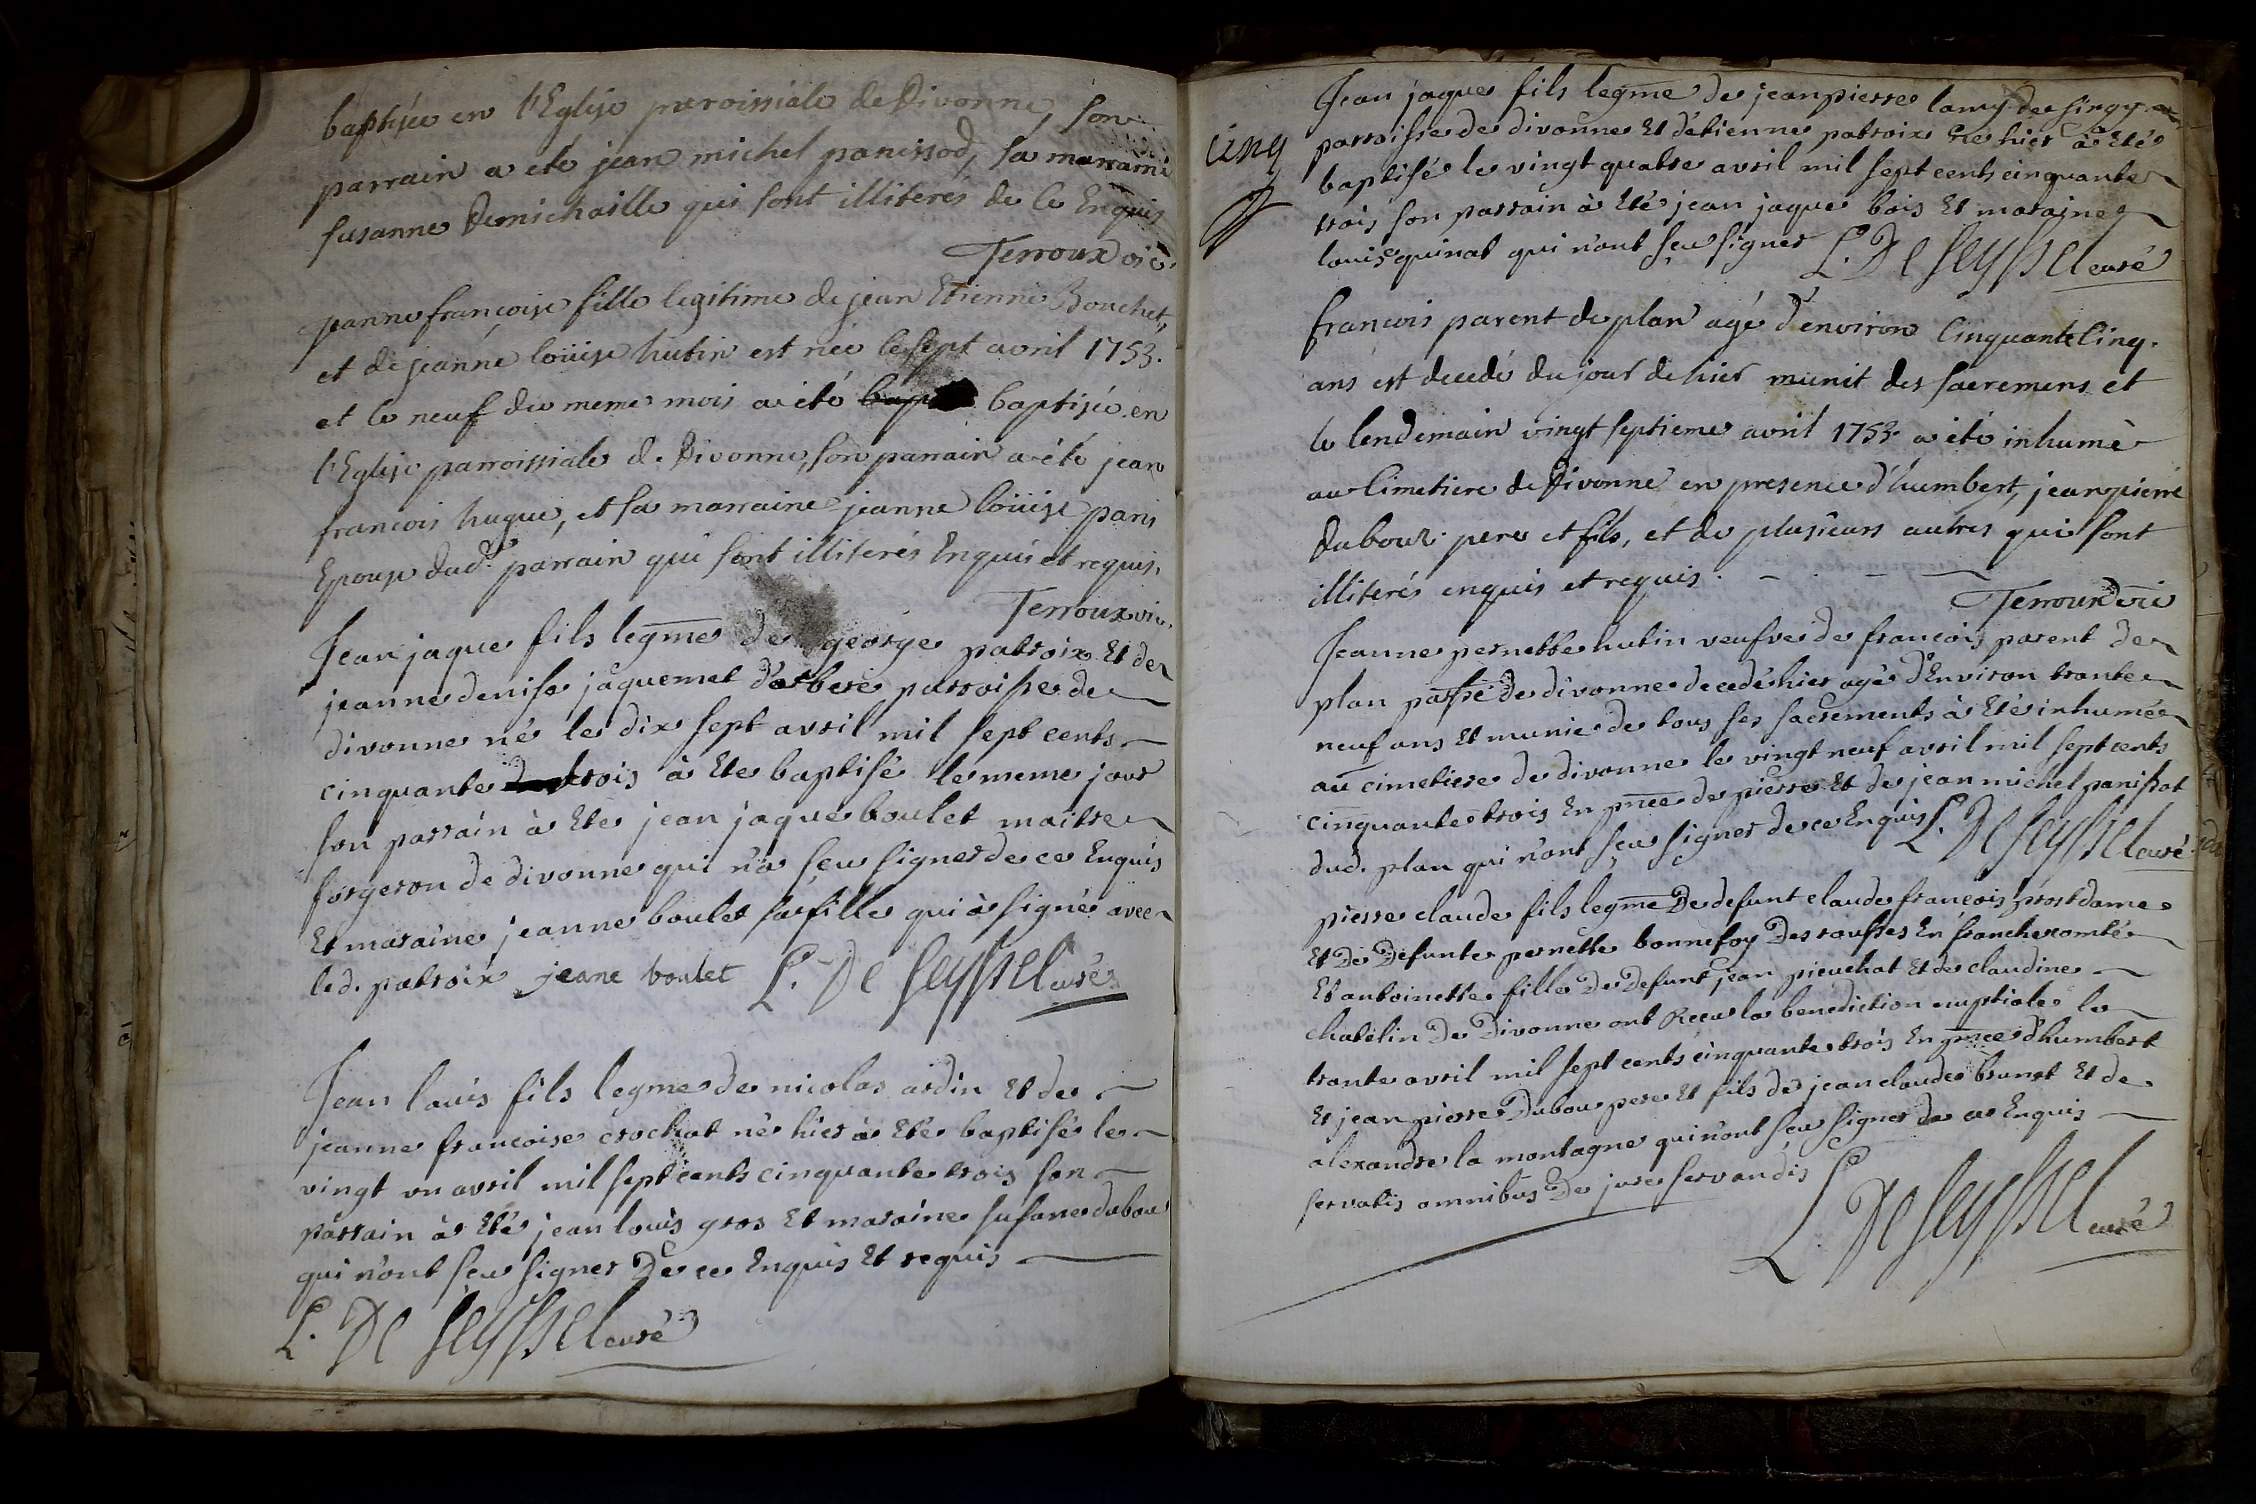 baptisée en l'Eglise paroissiale de Divonne, son
parrain a eté jean michel panissod, sa marraine
susanne Demichaille qui sont illiterés de ce Enquis
Terroux vic.
jeanne françoise fille legitime de jean Etienne Bouchet,
et de jeanne loüise hutin est née le sept avril 1753.
et le neuf du meme mois a été baptisée en
l'Eglise parroissiale de Divonne, son parrain a été jean
francois hugue, et sa marraine jeanne loüise paris
Epouse dud. parrain qui sont illiterés Enquis et requis,
Terroux vic.
Jean jaque fils legme de george patroix Et de
jeanne denise jaquemet d'arbere parroisse de
divonne né le dix sept avril mil sept cents
cinquante trois à Ete baptisé le meme jour
son parrain à Eté jean jaque boulet maitre
forgeron de divonne qui n'a sçu signer de ce Enquis
Et maraine jeanne boulet sa fille qui à signé avec
led. patroix jeane boulet L. De Seyssel curé
Jean louis fils legme de nicolas ardin Et de
jeanne francoise crochat né hier à Eté baptisé le
vingt un avril mil sept cents cinquante trois son
parrain à Eté jean louis gros Et maraine susane dubou
qui n'ont sçu signer De ce Enquis Et requis
L. De Seyssel curé
Jean jaque fils legme de jean pierre lamy de
cinq parroisse de divonne Et d'etienne patroix né hier à Eté
baptisé le vingt quatre avril mil sept cents cinquante
trois son parrain à Eté jean jaque bois Et maraine
louise quinat qui n'ont sçu signer L. De Seyssel curé
francois parent de plan agé d'environ Cinquante Cinq.
ans est decedé du jour de hier munit des sacremens et
le lendemain vingt septieme avril 1753 a été inhumé
au Cimetiere de Divonne en presence d'humbert, jean pierre
Dubouz pere et fils, et de plusieurs autres qui sont
illiterés enquis et requis.
Terroux vic
Jeanne pernette hutin veufve de francois parent de
plan passe de divonne decedé hier agé d'Environ trante
neuf ans Et munie de tous ses sacrements à Eté inhumée
au cimetiere de divonne le vingt neuf avril mil sept cents
cinquante trois En pnce de pierre Et de jean michel panissat
dud. plan qui n'ont sçu signer de ce Enquis L. De Seyssel curé
pierre claude fils legme De defunt claude francois prost dame
Et De Defunte pernette bonnefoy Des rousses En franche comté
Et antoinette fille De Defunt jean pieuchat Et de claudine
chatelin De Divonne ont Receu la benediction nuptiale le
trante avril mil sept cents cinquante trois En pnce d'humbert
Et jean pierre Dubou pere Et fils de jean claude brunet Et de
alexandre la montagne qui n'ont sçu signer de ce Enquis
servatis omnibus De jure servandis
L. De Seyssel curé